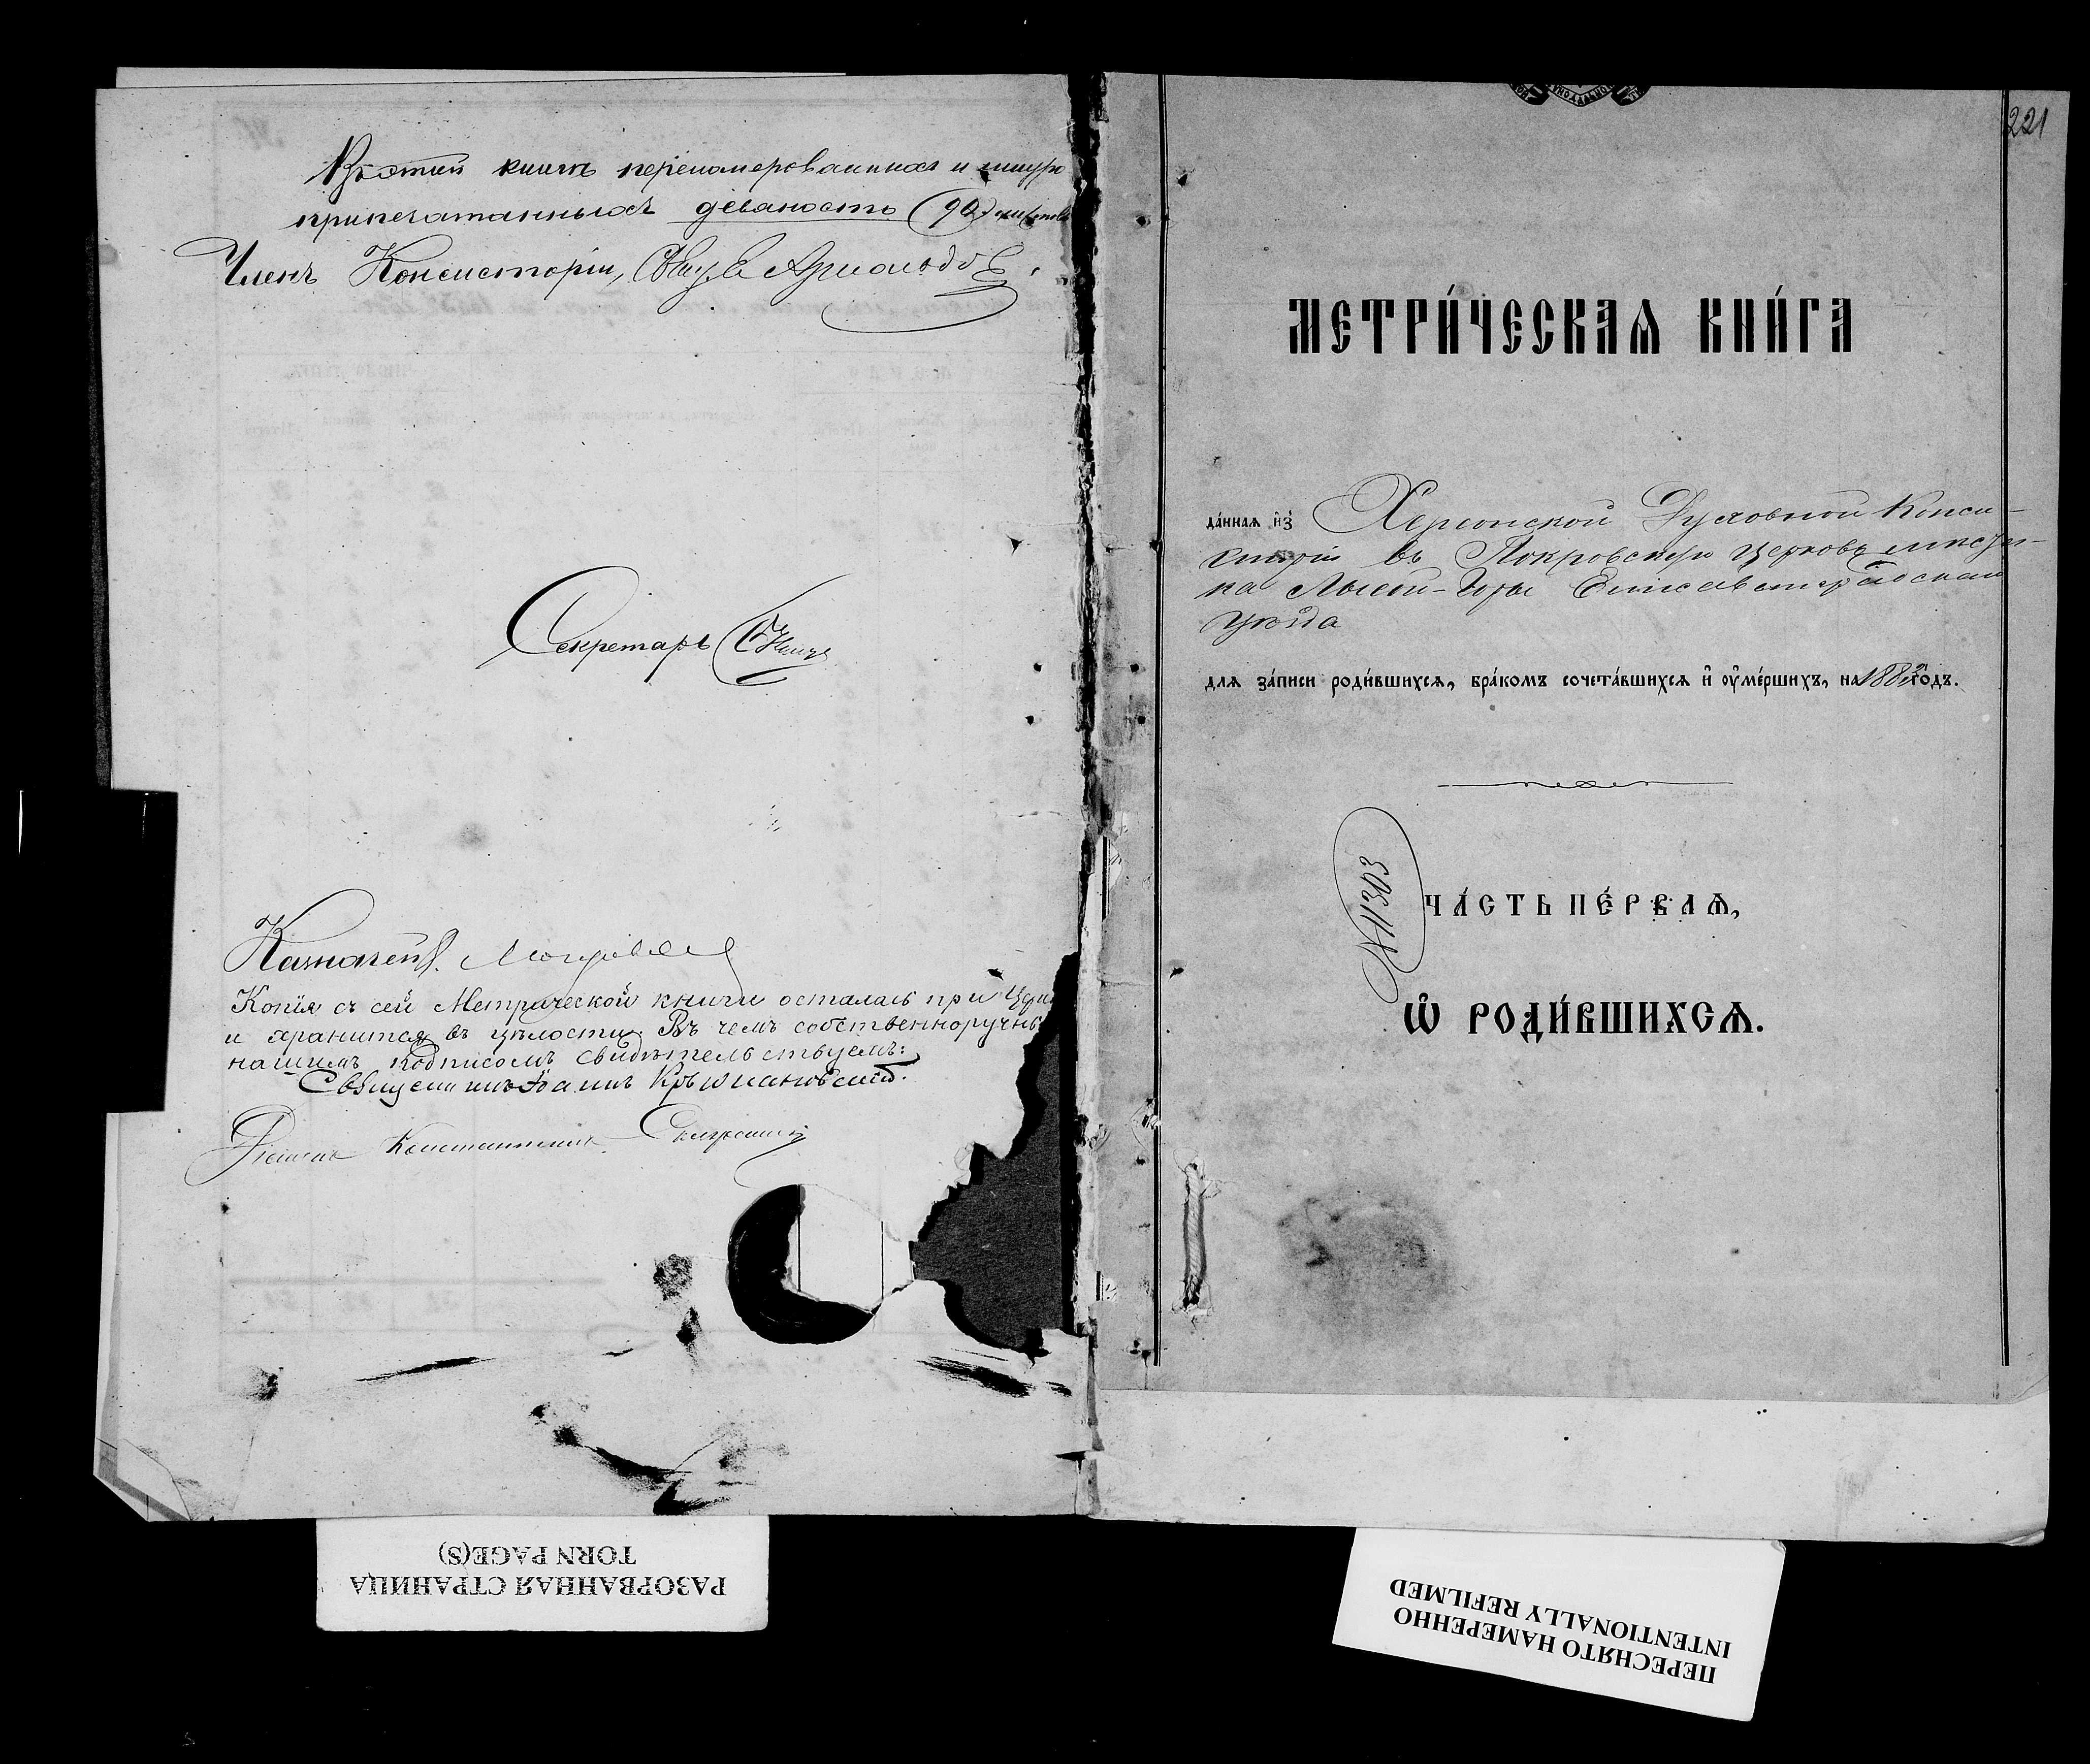 Въ этой книге перенумерованныхъ и шнуро
припечатанныхъ девяность (90) листовъ
Членъ Консисторіи,
Секретарь
Казначей
Копія съ сей Метрической книги осталась при Церк
и хранится въ цѣлости. Въ чемъ собственноручны
нашимъ подписомъ свидѣтельствуемъ:
Священникъ Іоаннъ Крыжановскій.
Діаконъ Константинъ
221
МЕТРИ́ЧЕСКАѦ КНИ́ГА
да́ннаѧ и҆з̾ Херсонской Духовной Конси-
сторіи въ Покровскую церковь мѣстеч-
ка Лысой-Горы Елисаветградскаго
уѣзда
длѧ за́писи роди́вшихсѧ, бра́комъ сочета́вшихсѧ и҆ ᲂу҆ме́ршихъ, на 188 годъ.
№ 11303
ЧА́СТЬ ПЕ́РВАѦ,
Ѡ҆ РОДИ́ВШИХСѦ.
РАЗОРВАННАЯ СТРАНИЦА
TORN PAGE(S)
ПЕРЕСНЯТО НАМЕРЕННО
INTENTIONALLY REFILMED